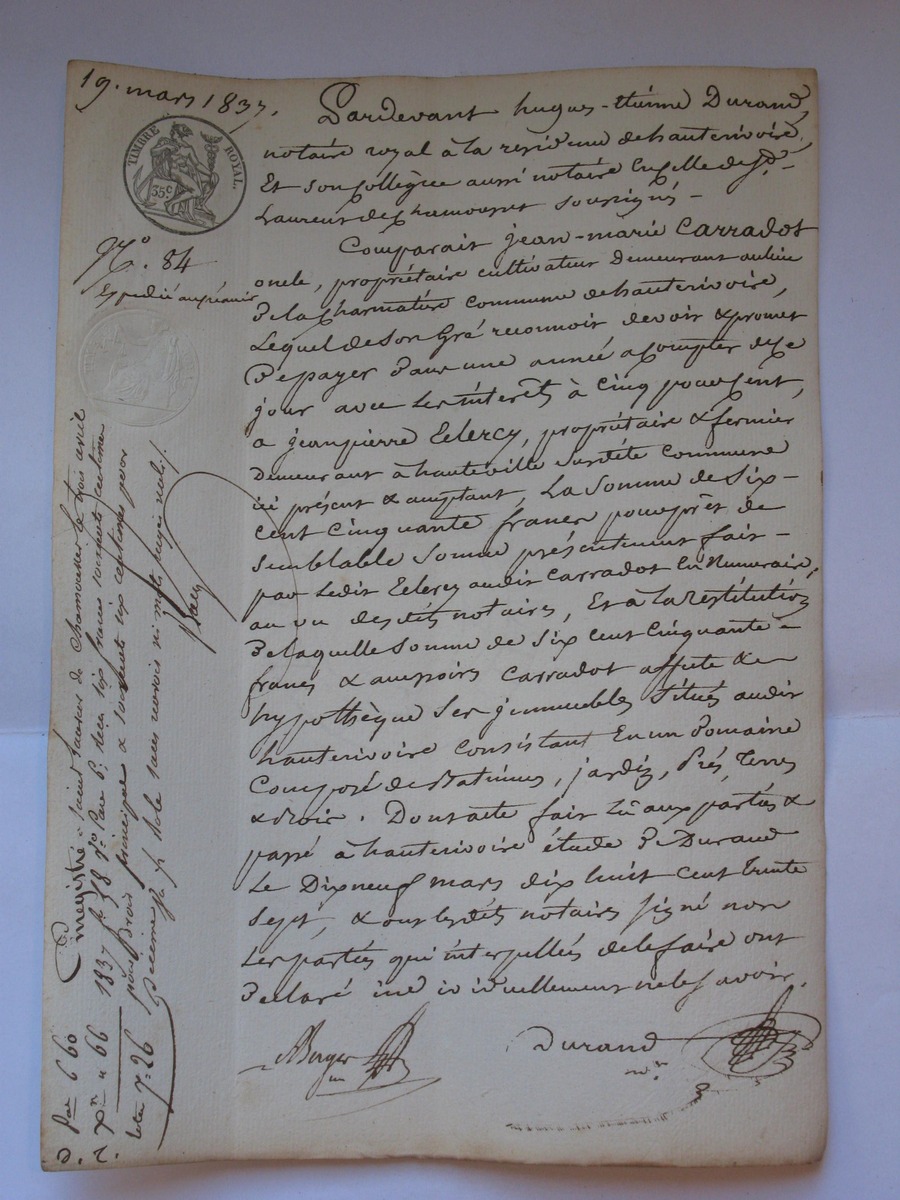 19. mars 1837.
TIMBRE ROYAL.
35c
N.o 84
Expédié au créancier
Pardevant hugues-étienne Durand,
notaire royal à la résidence de hauterivoire
Et son Collègue aussi notaire En celle de St.
Laurent de Chamousset soussignés -
Comparait jean-marie CARRADOT
oncle, propriétaire cultivateur demeurant au lieu
De la Charmature commune de hauterivoire,
Lequel de son Gré reconnoit devoir & promet
De payer Dans une année à Compter de Ce
jour avec Les intérêts à Cinq pour Cent,
a jean pierre Eclercy, propriétaire & fermier
Demeurant à hauteville susdite commune
ici présent & acceptant, La Somme de Six-
cent Cinquante francs pour prêt de
semblable Somme présentement fait -
par Ledit Eclercy audit Carradot En Numéraire,
au vu desdits notaires, Et à la Restitution
De laquelle Somme de Six Cent Cinquante -
francs & accessoirs Carradot affecte &
hypothèque Ses jmmeubles Situés audit
hauterivoire Consistant En un Domaine
Composé de Batimens, jardin, Prés, Terres
& Bois. Dont acte fait Lû aux parties &
passé à hauterivoire étude De Durand
Le Dix neuf mars dix huit Cent Trente
Sept, & ont lesdits notaires signé non
Les parties qui interpellées de le faire ont
Declaré individuellement ne le Savoir.
Berger
Durand
Enregistré à Saint Laurent de Chamousset le trois avril
1837 fo. 38 Vo. Case 6. reçu six francs soixante centimes
pour Droit principal & soixante six centimes pour
Décime sur Role sans renvois ni mots rayés nuls.
6 60
66
7=26